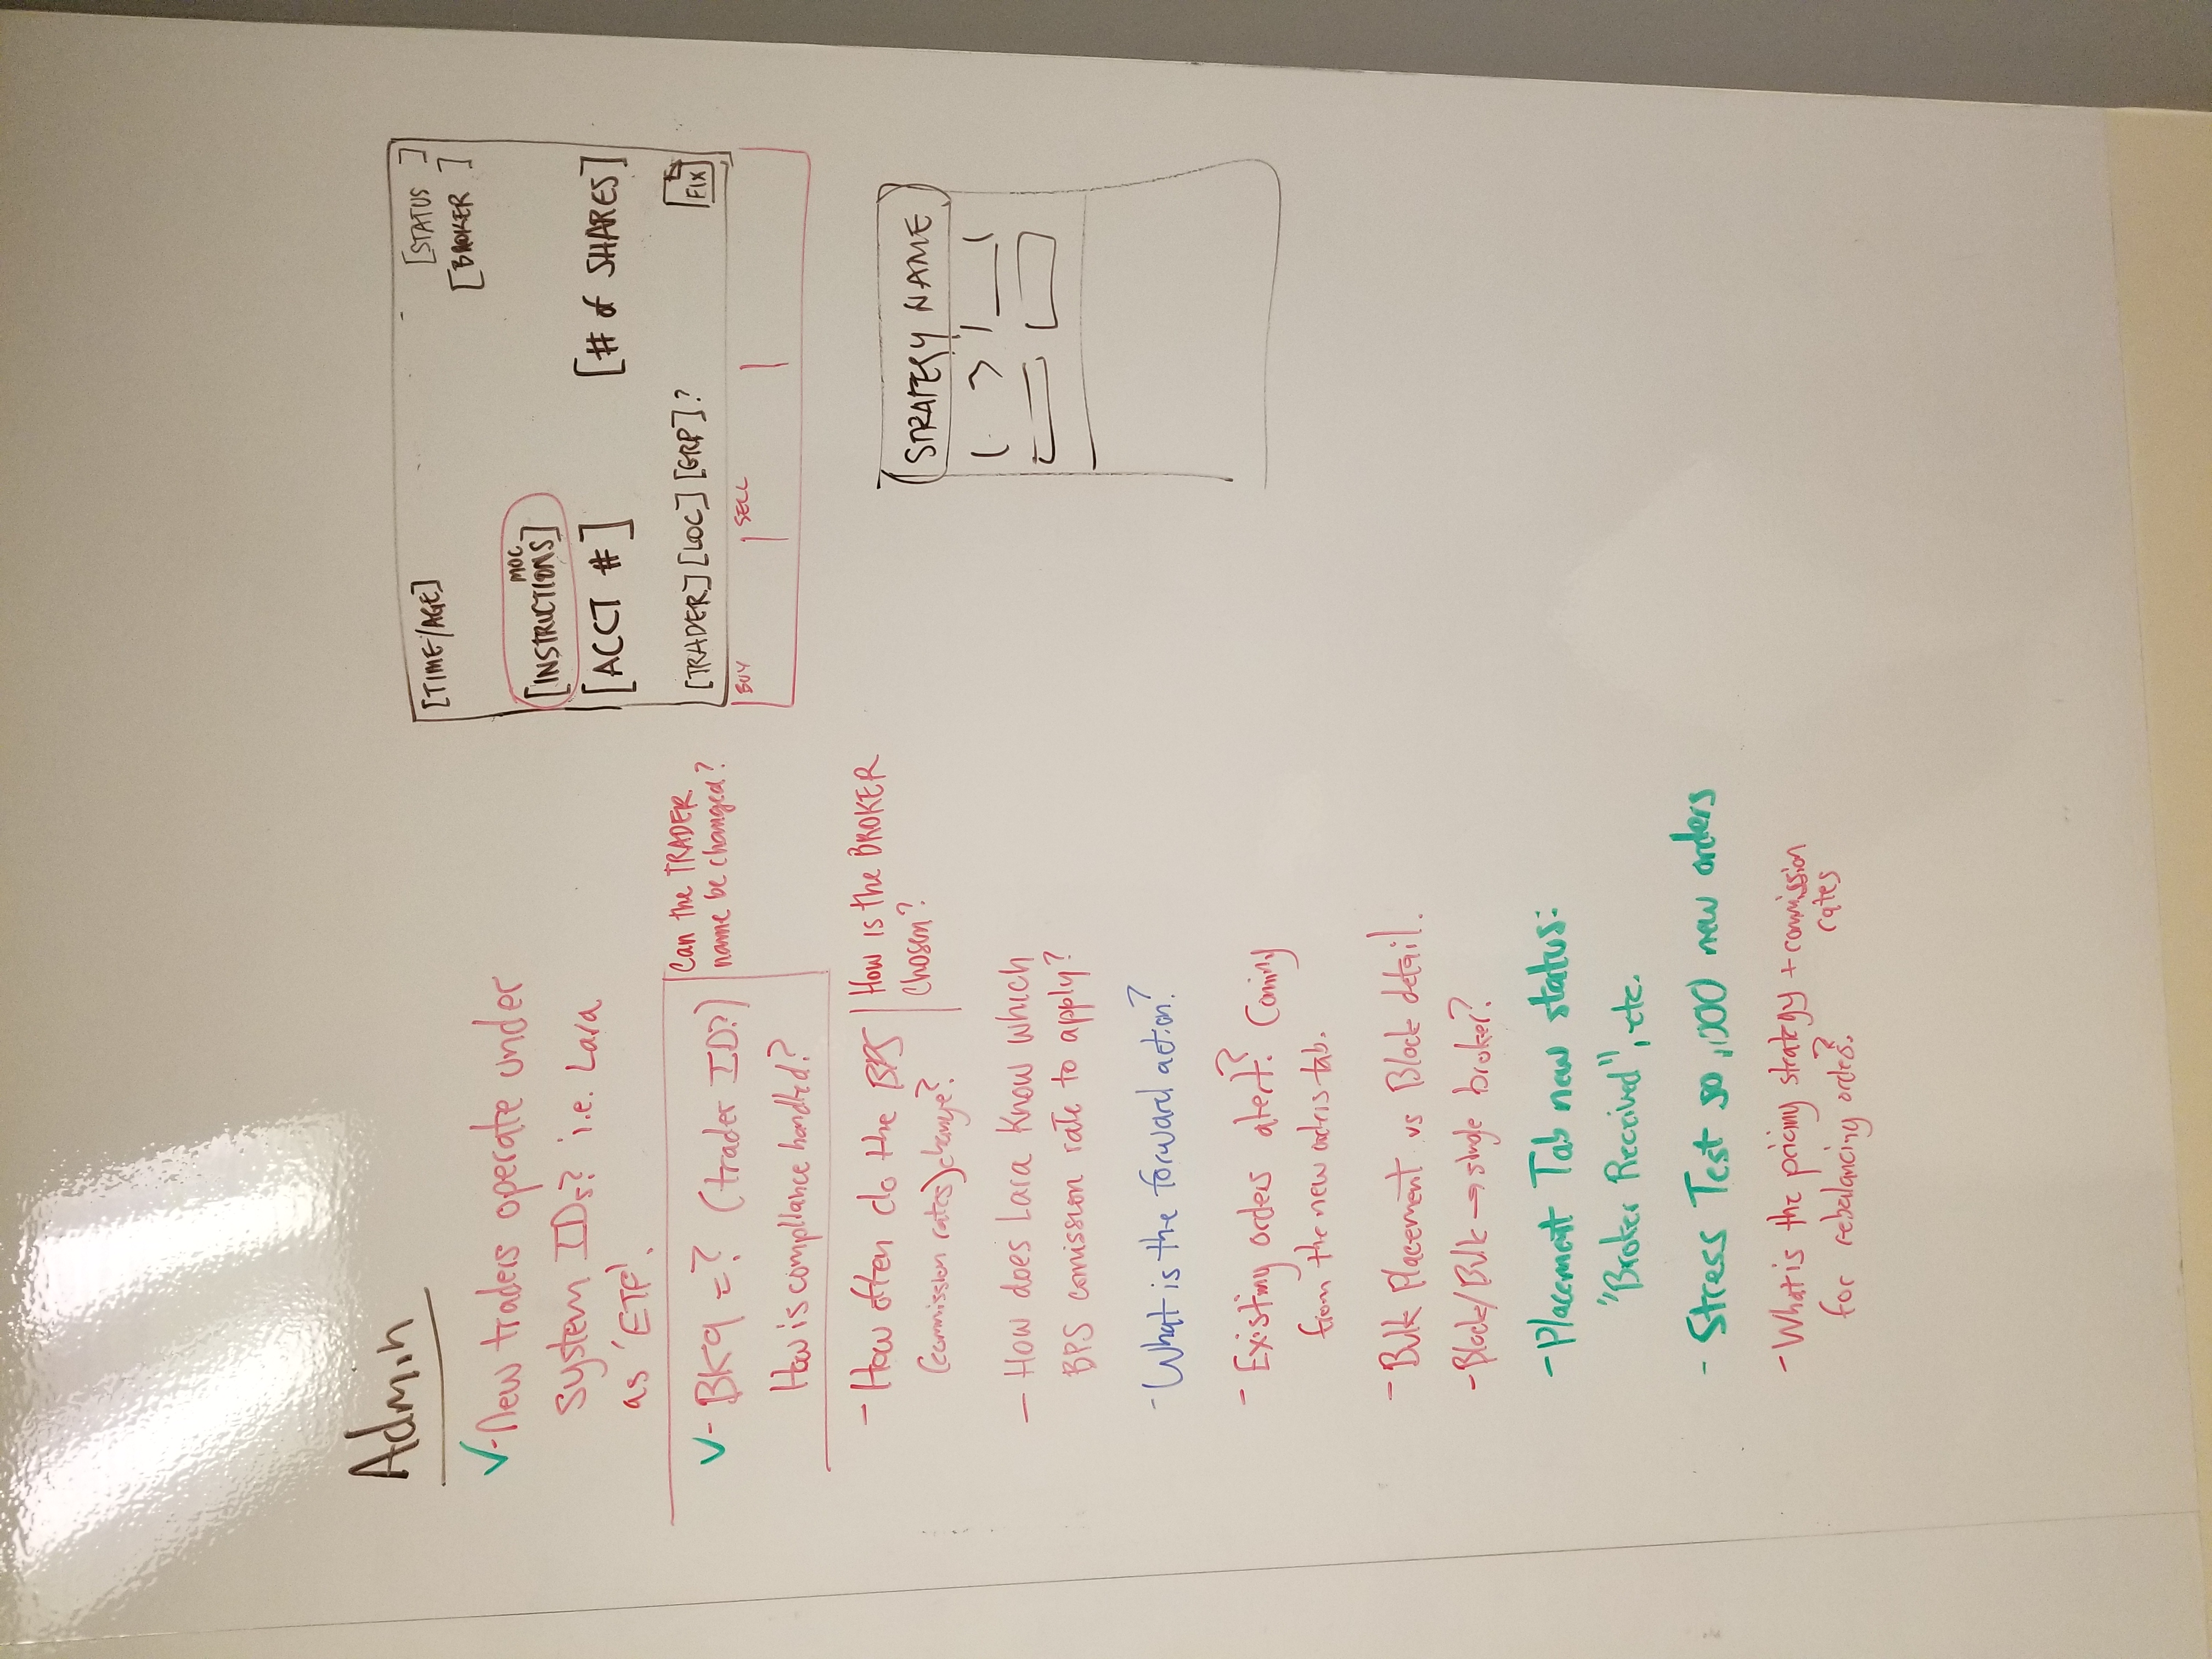 Admin
✓ - New traders operate under
system IDs? i.e. Lara
as 'ETF'.
✓ - BK9 = ? (trader ID?)
How is compliance handled?
Can the TRADER
name be changed?
- How often do the BPS
(commission rates) change?
How is the BROKER
chosen?
- How does Lara know which
BPS comission rate to apply?
- What is the forward action?
- Existing orders alert? Coming
from the new orders tab.
- Bulk Placement vs Block detail.
- Block/Bulk → single broker?
- Placement Tab new status:
"Broker Received", etc.
- Stress Test 50,000 new orders
- What is the pricing strategy + commission
rates
for rebalancing orders?
[TIME/AGE]
[STATUS ]
[BROKER ]
MOC
[INSTRUCTIONS]
[ACCT #]
[# of SHARES]
[TRADER] [LOC] [GRP] ?
FIX
BUY
SELL
STRATEGY NAME